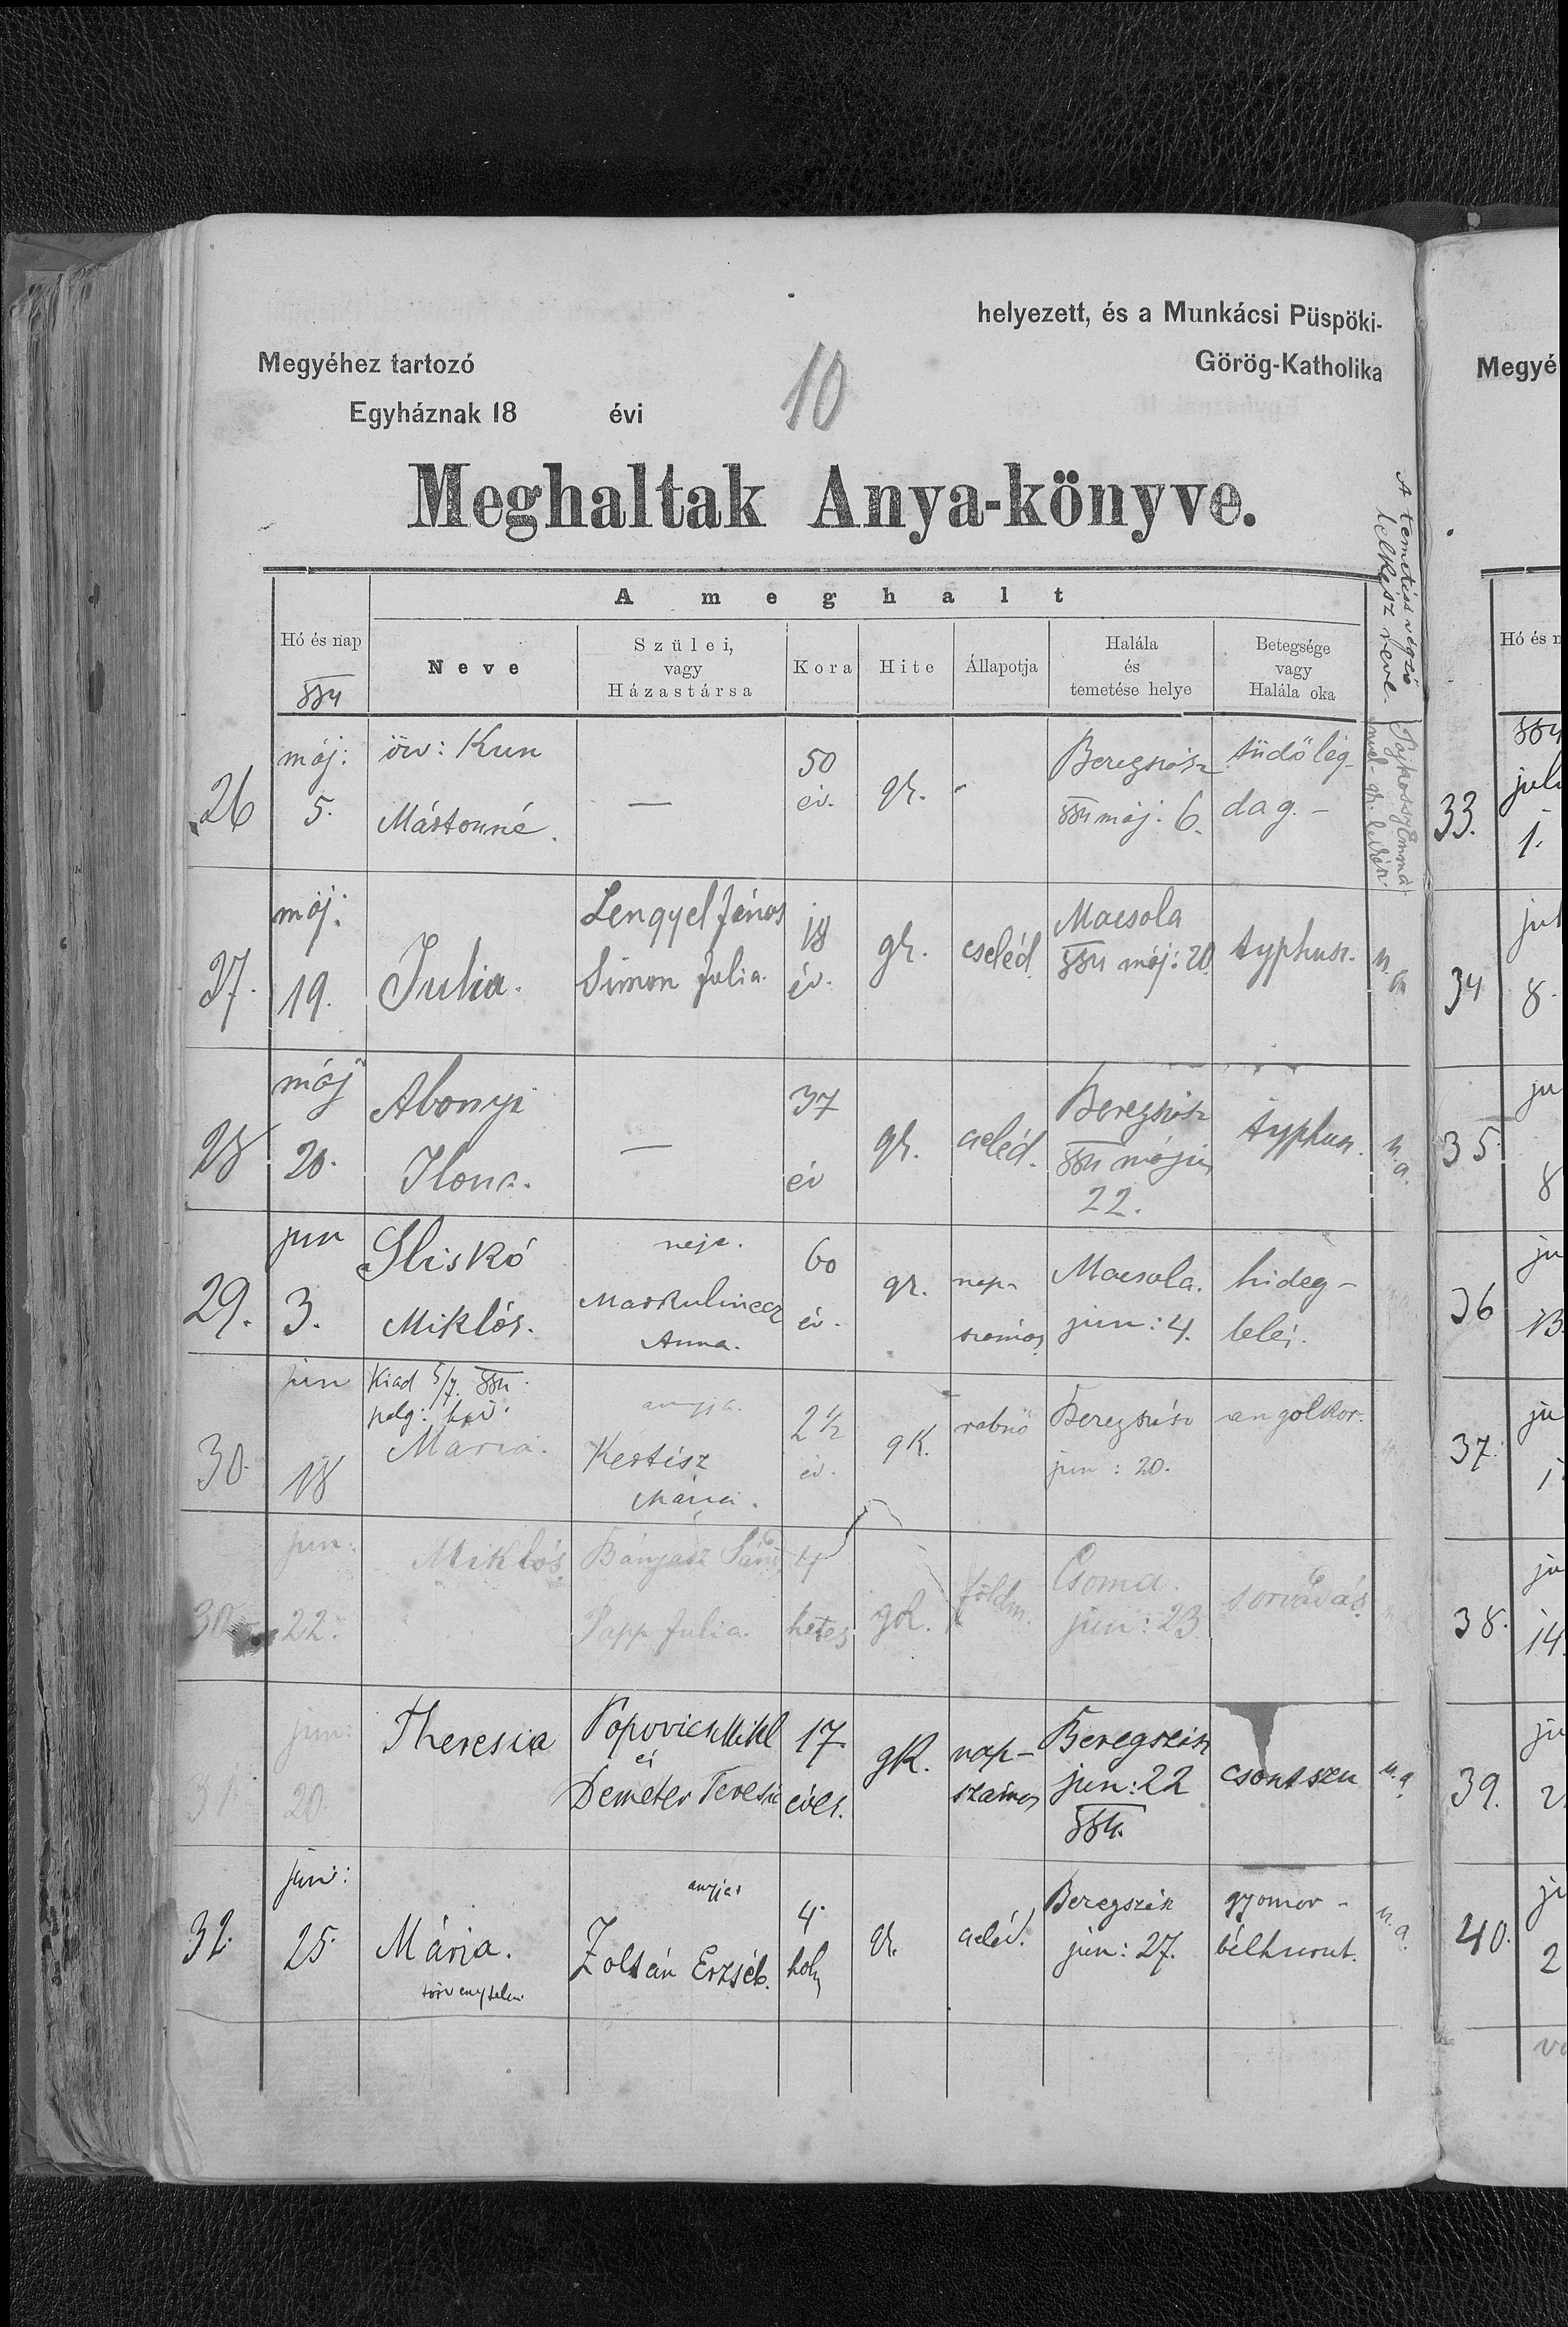 helyezett, és a Munkácsi Püspöki-
Megyéhez tartozó
Görög-Katholika
Egyháznak 18 évi
10
Meghaltak Anya-könyve.
A temetést végző
lelkész neve.
A meghalt
Hó és nap
884
Neve
Szülei,
vagy
Házastársa
Kora
Hite
Állapotja
Halála
és
temetése helye
Betegsége
vagy
Halála oka
26
máj:
5.
özv: Kun
Mártonné.
—
50
év.
gk.
Beregszász
884 máj: 6.
tüdőlog-
dag.-
27.
máj:
19.
Julia.
Lengyel János
Simon Julia.
18
év.
gk.
cseléd
Macsola
884 máj: 20
typhus.
u. a.
28
máj
20.
Abonyi
Ilona.
—
37
év
gk.
cseléd.
Beregszász
884 május
22.
typhus.
u. a.
29.
jun
3.
Sliskó
Miklós.
neje.
Anna.
60
év.
gk.
nap-
számos
Macsola.
jun: 4.
hideg-
lelés.
30.
jun
18
Kiad 5/7. 884.
Mária.
anyja.
Kertész
Mária.
2 1/2
év.
gk.
rabnő
Beregszász
jun: 20.
angolkor.
jun:
22.
Miklós
Bányász
Papp Julia.
4
hetes
gk.
földm.
Csoma.
jun: 23
sorvadás.
31.
jun:
20.
Theresia
Popovics Mikl
és
Demeter Teresia
17.
éves.
gk.
nap-
számos
Beregszász
jun: 22
884.
csontszu
u. a.
32.
jun:
25.
Mária.
törvénytelen.
anyja:
Zoltán Erzséb.
4.
hó
gk.
cseléd.
Beregszász
jun: 27.
gyomor-
bélhurut.
u. a.
Megyé
Hó és n
884
33.
juli
1.
34
jul
8.
35.
ju
8
36
ju
13
37.
ju
1
38.
ju
14
39.
ju
2
40.
ju
2